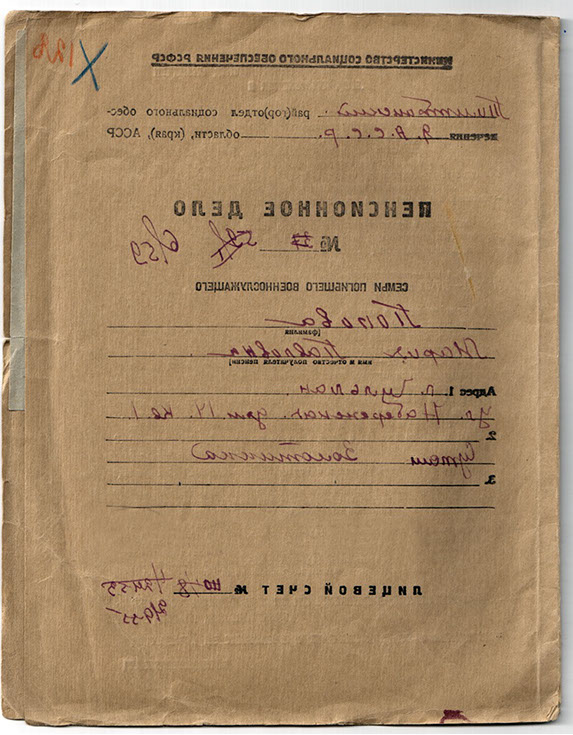 МИНИСТЕРСТВО СОЦИАЛЬНОГО ОБЕСПЕЧЕНИЯ РСФСР
Тимптонский рай(гор)отдел социального обес-
печения Я.А.С.С.р. области, (края), АССР
ПЕНСИОННОЕ ДЕЛО
№ 6/59
СЕМЬИ ПОГИБШЕГО ВОЕННОСЛУЖАЩЕГО
Попова
(фамилия)
Мария Павловна
имя и отчество получателя пенсии)
Адрес 1. п. Чульман
ул. Набережная дом 14. кв. 1
2.
Золотинка
3.
ЛИЦЕВОЙ СЧЕТ №